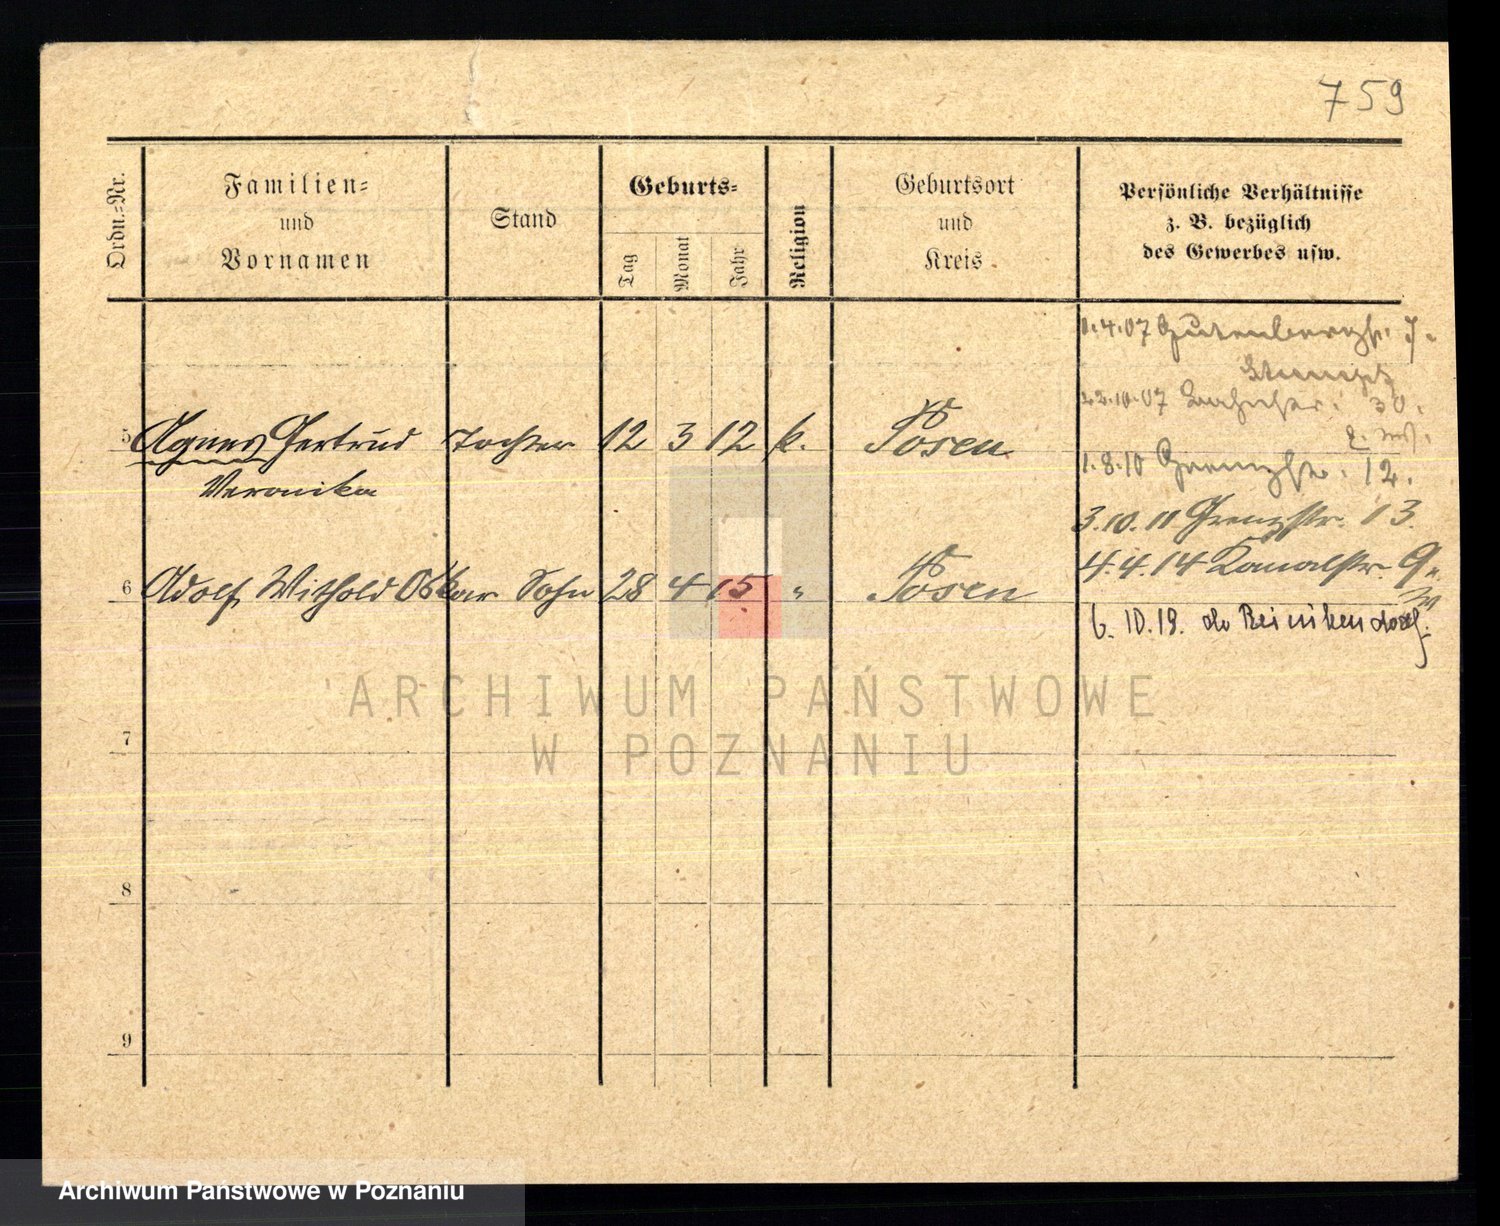 759
Ordn.-Nr.
Familien-
und
Vornamen
Stand
Geburts-
Tag
Monat
Jahr
Religion
Geburtsort
und
Kreis
Persönliche Verhältnisse
z. B. bezüglich
des Gewerbes usw.
1.4.07 Gutenbergstr. 7.
22.10.07 30.
5 Agnes Gertrud Tochter 12 3 12 k. Posen
Veronika
1.8.10 Grenzstr. 12.
3.10.11 Grenzstr. 13.
6 Adolf Withold Oskar Sohn 28 4 15 " Posen
4.4.14 Kanalstr. 9
6.10.19. do Reinikendorf
ARCHIWUM PAŃSTWOWE
W POZNANIU
7
8
9
Archiwum Państwowe w Poznaniu